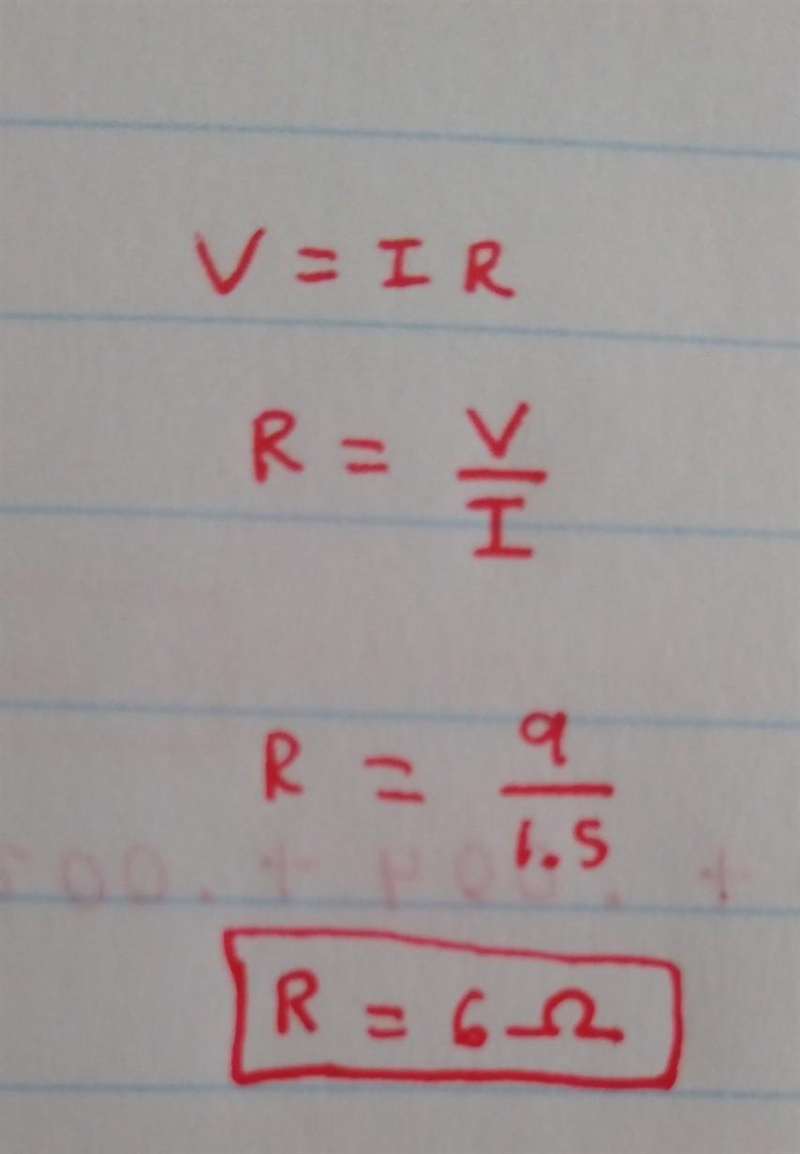 V = I R
R = V/I
R = 9/1.5
R = 6 Ω